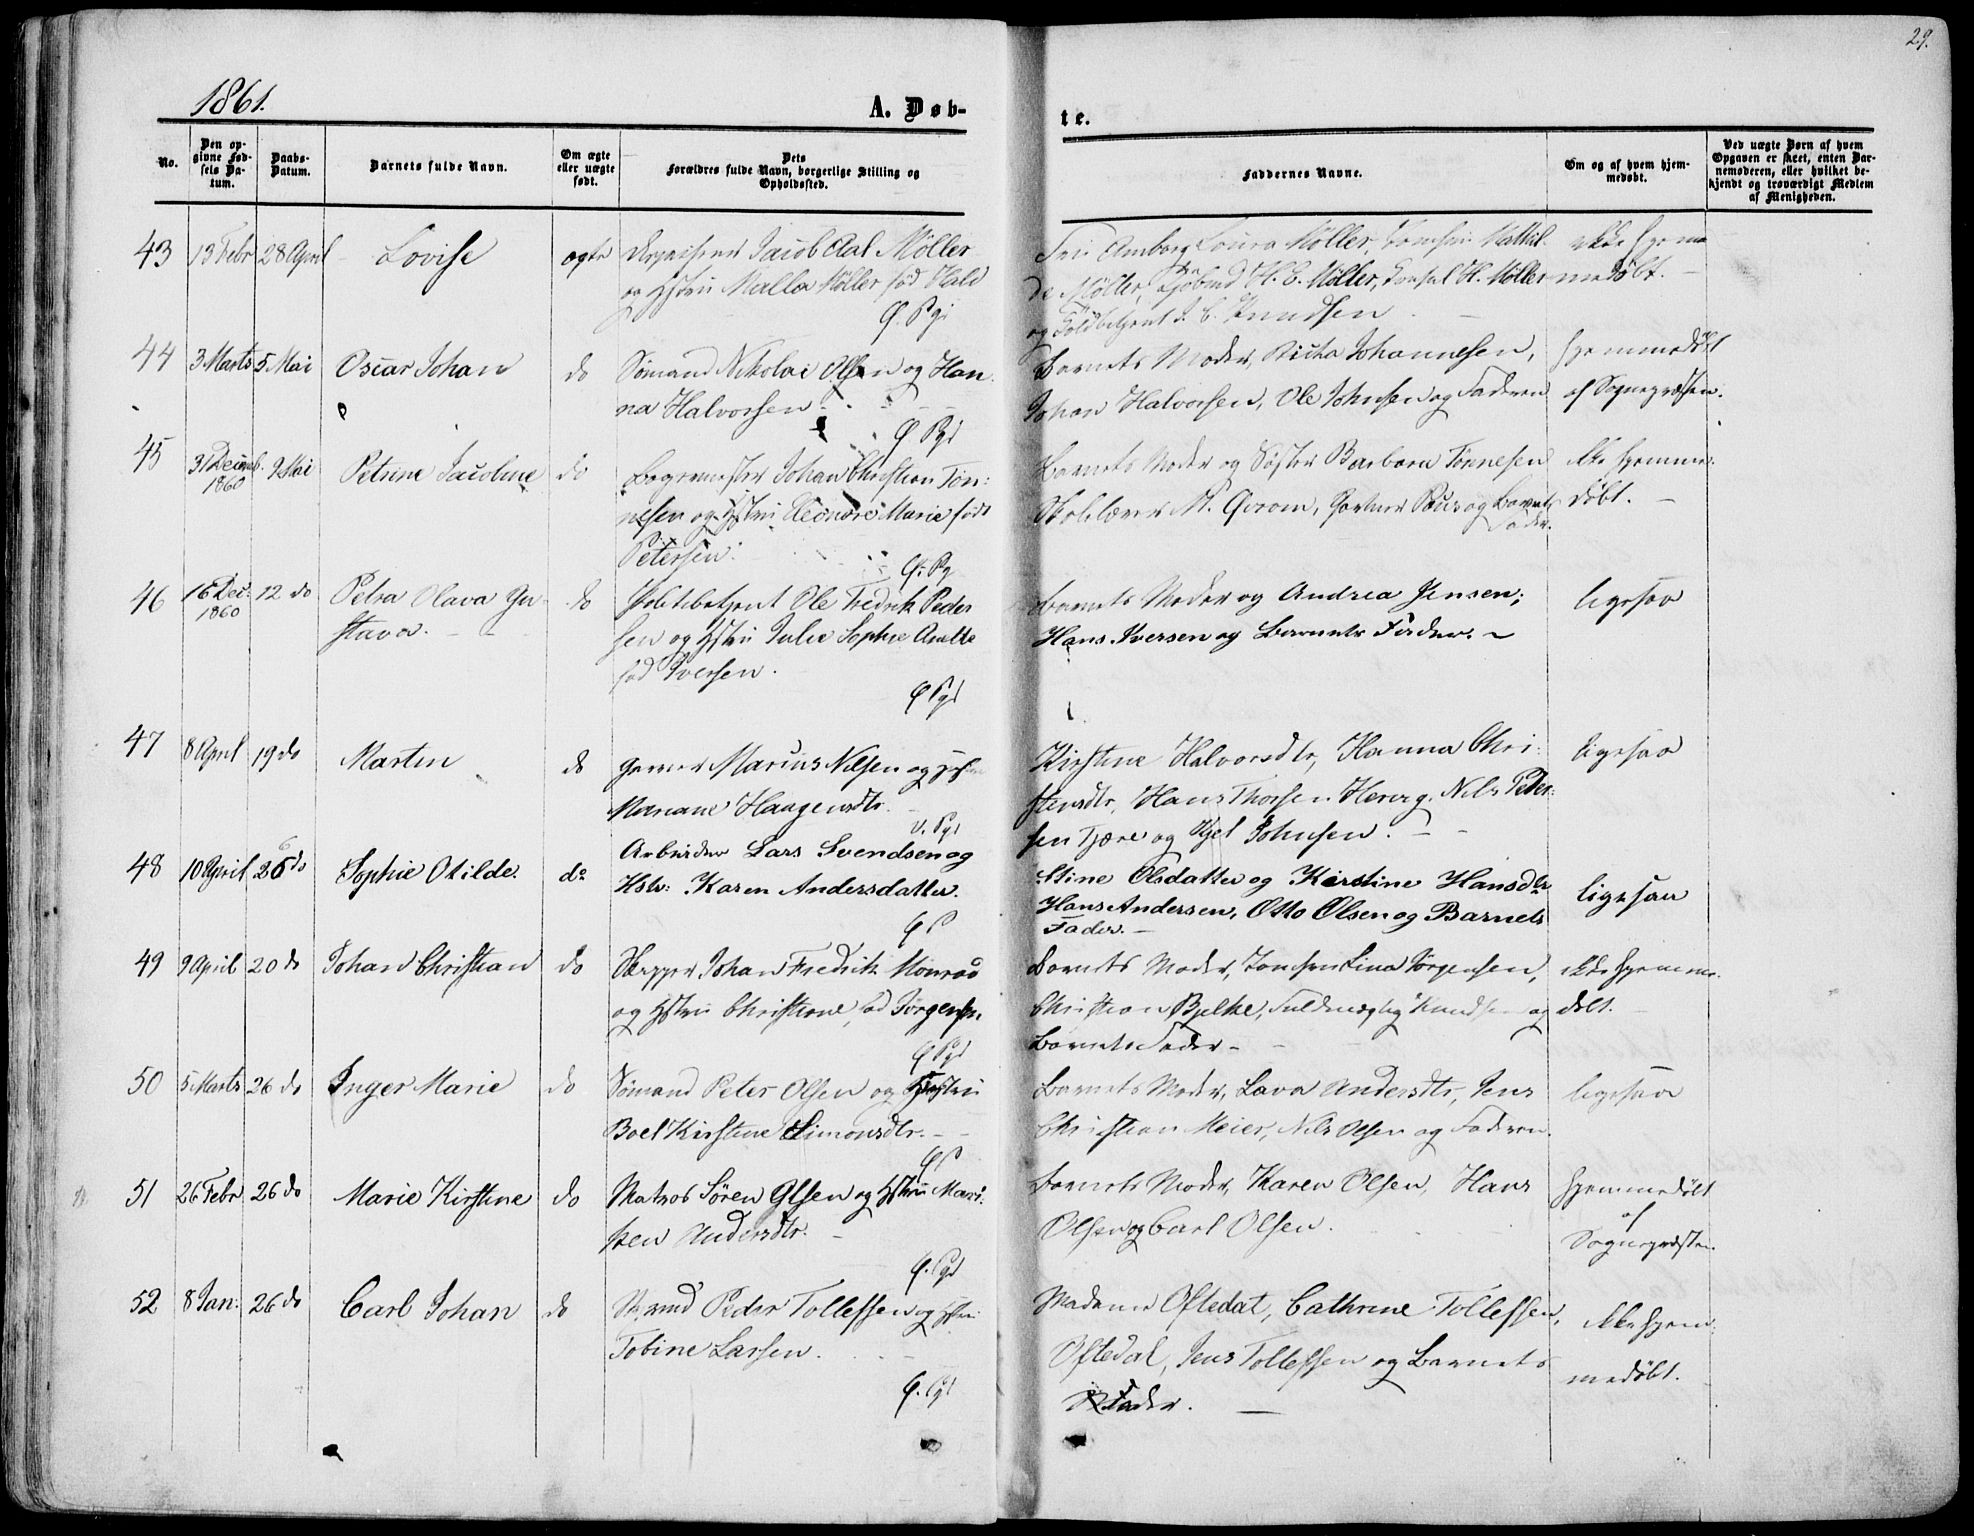 29.
1861.
A. Døb-
te.
No.
Den op-
givne Fød-
sels Da-
tum.
Daabs-
Datum.
Barnets fulde Navn.
Om ægte
eller uægte
født.
Dets
Forældres fulde Navn, borgerlige Stilling og
Opholdssted.
Faddernes Navne.
Om og af hvem hjem-
medøbt.
Ved uægte Børn af hvem
Opgaven er skeet, enten Bar-
nemoderen, eller hvilket be-
kjendt og troværdigt Medlem
af Menigheden.
43 13 Febr 28 April Lovise ægte Jacob Aal Møller
og Hstru Malla Møller fød Hald
Laura Møller, Jomfru Mathil-
de Møller, H. E. Møller, Konsul H. Møller
og Toldbetjent J. C. Knudsen
ikke hjem
medøbt.
44 3 Marts 5 Mai Oscar Johan do Sømand Nikolai Olsen og Han
na Halvorsen
Barnets Moder, Johannesen,
Johan Halvorsen, Ole Johnsen og Faderen
hjemmedøbt
af Sognepræsten.
45 31 Decemb. 1860 9 Mai Petrine Jacoline do Johan Christian Tøn:
nesen og Hstru Eleonore Marie født
Petersen
Barnets Moder og Søster Barbara Tønnesen
Skolelærer og Barnets
Fader.
ikke hjemme
døbt.
46 16 Dec: 1860 12 do Petra Olava Gu
stava. do Politibetjent Ole Fredrik Peder
sen og Hstru Julie Sophie Anette
fød Iversen.
Barnets Moder og Andrea Jensen,
Hans Iversen og Barnets Fader.
ligesaa
47 8 April 19 do Martin do Marius Nilsen og Hstru
Mariane Haagensdtr.
Kirstine Halvorsdtr, Hanna Chri
stensdtr, Hans Thorsen Nils Peter
sen Tjære og Kjel Johnsen.
ligesaa
48 10 April 26 do Sophie Otilde. do Arbeider Lars Svendsen og
Hstr: Karen Andersdatter.
Stine Olsdatter og Kirstine Hansdtr
Hans Andersen, Otto Olsen og Barnets
Fader.
ligesaa
49 9 April 20 do Johan Christian do Skipper Johan Fredrik Monrad
og Hstru Christiane, fød Jørgensen
Barnets Moder, Jomfru Lina Jørgensen,
Christian Bjelke, Fuldmægtig Knudsen og
Barnets Fader
ikke hjemme
døbt.
50 5 Marts 26 do Inger Marie do Sømand Peter Olsen og Hustru
Boel Kirstine Simonsdtr.
Barnets Moder, Lava Andersdtr, Jens
Christian Meier, Nils Olsen og Faderen.
ligesaa
51 26 Febr 26 do Marie Kirstine do Matros Søren Olsen og Hstru Mari
ken Andersdtr.
Barnets Moder, Karen Olsen, Hans
Olsen og Carl Olsen.
hjemmedøbt
af
Sognepræsten.
52 8 Jan: 26 do Carl Johan do Peder Tollefsen og Hstru
Tobine Larsen.
Madame Oftedal, Cathrine Tollefsen,
Oftedal, Jens Tollefsen og Barnets
Fader.
ikke hjem
medøbt.